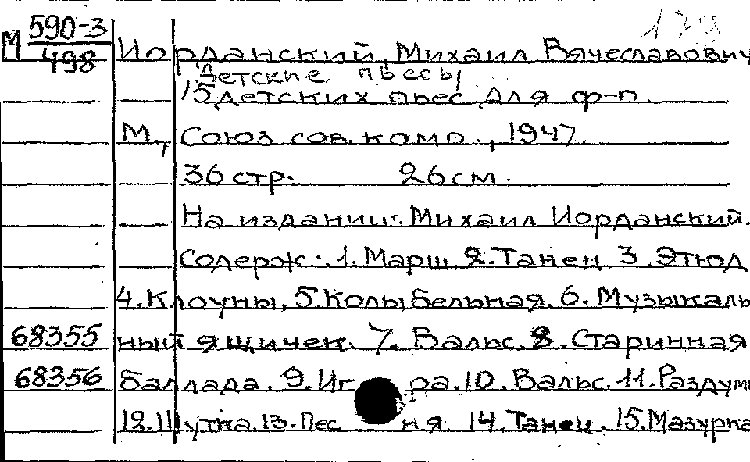 М 590-3
498
Иорданский, Михаил Вячеславович
Детские пьесы
15 детских пьес для ф-п.
М., Союз сов. комп., 1947.
36 стр. 26 см.
На издании: Михаил Иорданский.
Содерж.: 1. Марш 2. Танец 3. Этюд
4. Клоуны, 5. Колыбельная. 6. Музыкаль
68355 ный ящичек. 7. Вальс. 8. Старинная
68356 баллада. 9. Игра. 10. Вальс. 11. Раздумь
12. Шутка. 13. Песня 14. Танец. 15. Мазурка